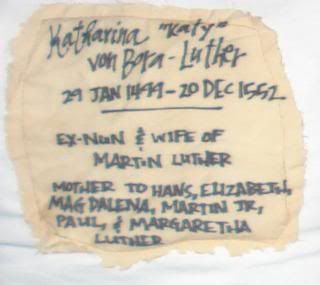 Katharina "Katy"
von Bora-Luther
29 JAN 1499-20 DEC 1552
EX-NUN & WIFE OF
MARTIN LUTHER
MOTHER TO HANS, ELIZABETH,
MAGDALENA, MARTIN JR,
PAUL, & MARGARETHA
LUTHER